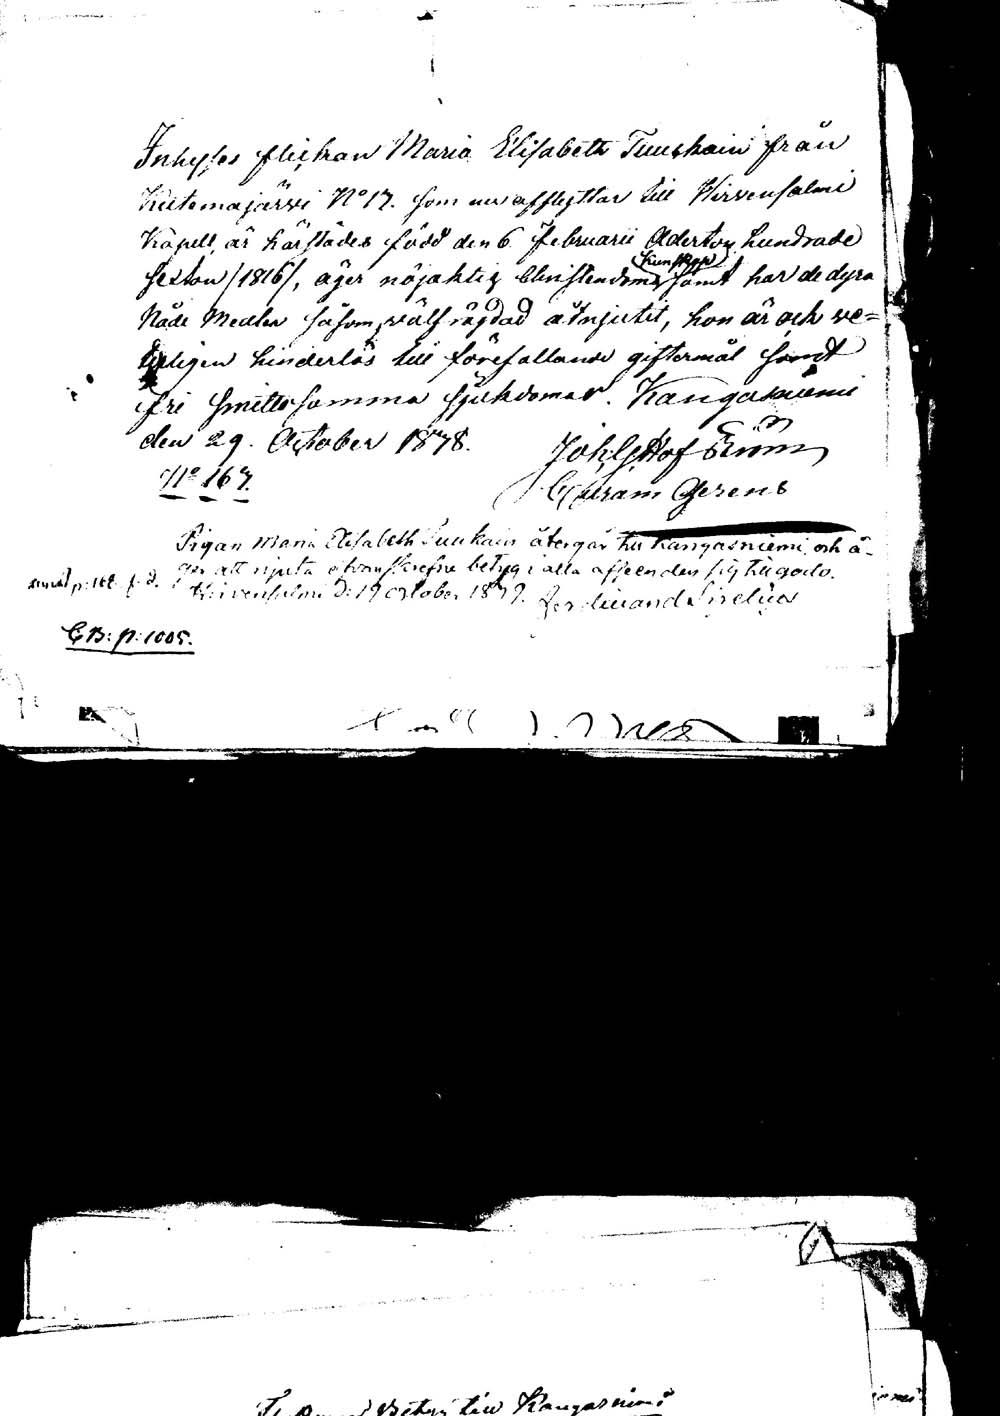 Inhyses flickan Maria Elisabeth Tuuskain från
Kutemajärvi No 17. som nu afflyttar till Hirvensalmi
Kapell, är härstädes född den 6 Februarii Adertonhundrade
sexton /1816/, äger nöjaktig Christendoms kunskap samt har de dyra
Nåde Medlen såsom välfrägdad åtnjutit, hon är och ve=
terligen hinderlös till förefallande giftermål samt
fri smittosamma sjukdomar. Kangasniemi
den 29. October 1878.
Joh. G. Hofström
No 167.
Curam Gerens
Pigan Maria Elisabeth Tuukain återgår till Kangasniemi, och ä-
ger att njuta ofvanskrefne betyg i alla afseenden sig till godo.
p: 168.
Hirvensalmi d: 19 October 1879. Ferdinand Sirelius
CB: p: 1005.
Betyg till Kangasniemi